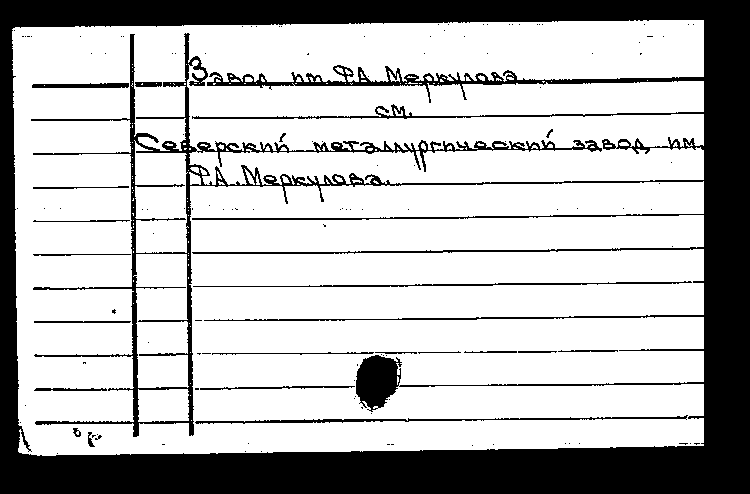 Завод им. Ф.А. Меркулова
см.
Северский металлургический завод им.
Ф.А. Меркулова.